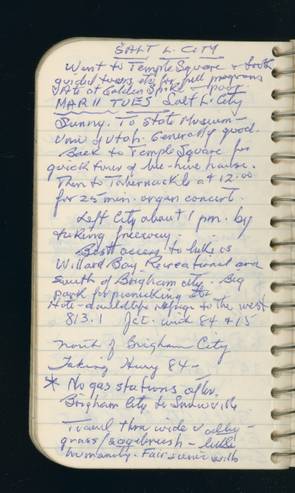 SALT L. CITY
Went to Temple Square & took
guided tours etc for full programs
MAR 11 TUES Salt L. City
Sunny. To State Museum -
Univ of Utah. Generally good.
Back to Temple Square for
quick tour of bee-hive house.
Then to Tabernackle at 12:00
for 25 min. organ concert.
Left City about 1 pm. by
taking freeway.
Best access to lake is
Willard Bay Recreational area
south of Brigham city. Big
park for picnicking etc
Note - a wildlife refuge to the west
813.1 Jct. with 84 & 15
north of Brigham City
Taking Hwy 84 -
* No gas stations after
Brigham City to Snowville
Travel thru wide valley -
grass/sagebrush - little
humanity. Fair scenic with